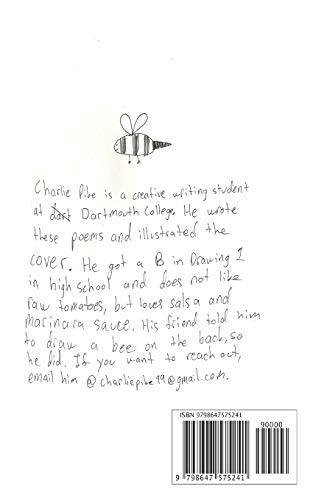 Charlie Pike is a creative writing student
at dart Dartmouth College. He wrote
these poems and illustrated the
cover. He got a B in Drawing 1
in high school and does not like
raw tomatoes, but loves salsa and
marinara sauce. His friend told him
to draw a bee on the back, so
he did. If you want to reach out,
email him @ charliepike99@gmail.com.
ISBN 9798647575241
90000
9 798647 575241